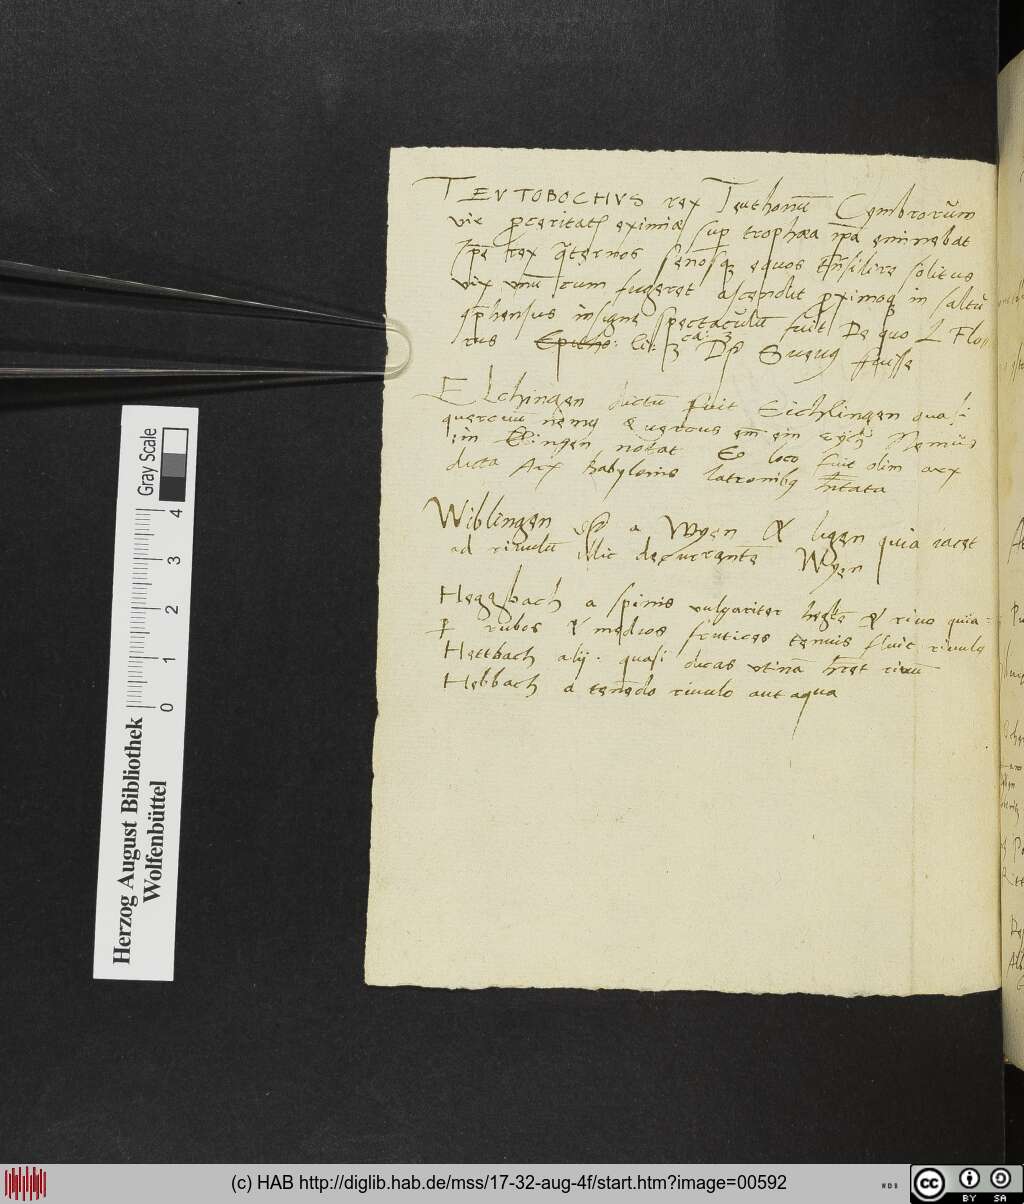 TEVTOBOCHVS rex Teuthonū Cymbrorūm
vir proceritatis eximiæ sup trophæa ipa eminebat
Ipe rex q̃ternos senosq equos trāsilire solitus
vix vnū cum fugeret ascendit proximoq in saltu
cōphensus insigne spectaculū fuit De quo L Flo
rus lib: 3 ca: 3 Suevus fuisse
Elchingen dictū fuit Eichlingen quasi
quercuū nemq
in Klingen notat Eo loco fuit olim arx
dicta Arx babylonis latronibq
Wiblingen a Wyen & ligen quia iacet
ad riuulū illic decurrentē Wyen
Hegesbach a spinis vulgariter & riuo quia
p rubos & medios frutices tenuis fluit riuulq
Hettbach alij. quasi dicas vtinā riuū
Hebbach a tenēdo riuulo aut aqua
Herzog August Bibliothek
Wolfenbüttel
0 1 2 3 4
Gray Scale
(c) HAB http://diglib.hab.de/mss/17-32-aug-4f/start.htm?image=00592
WDB
cc BY SA